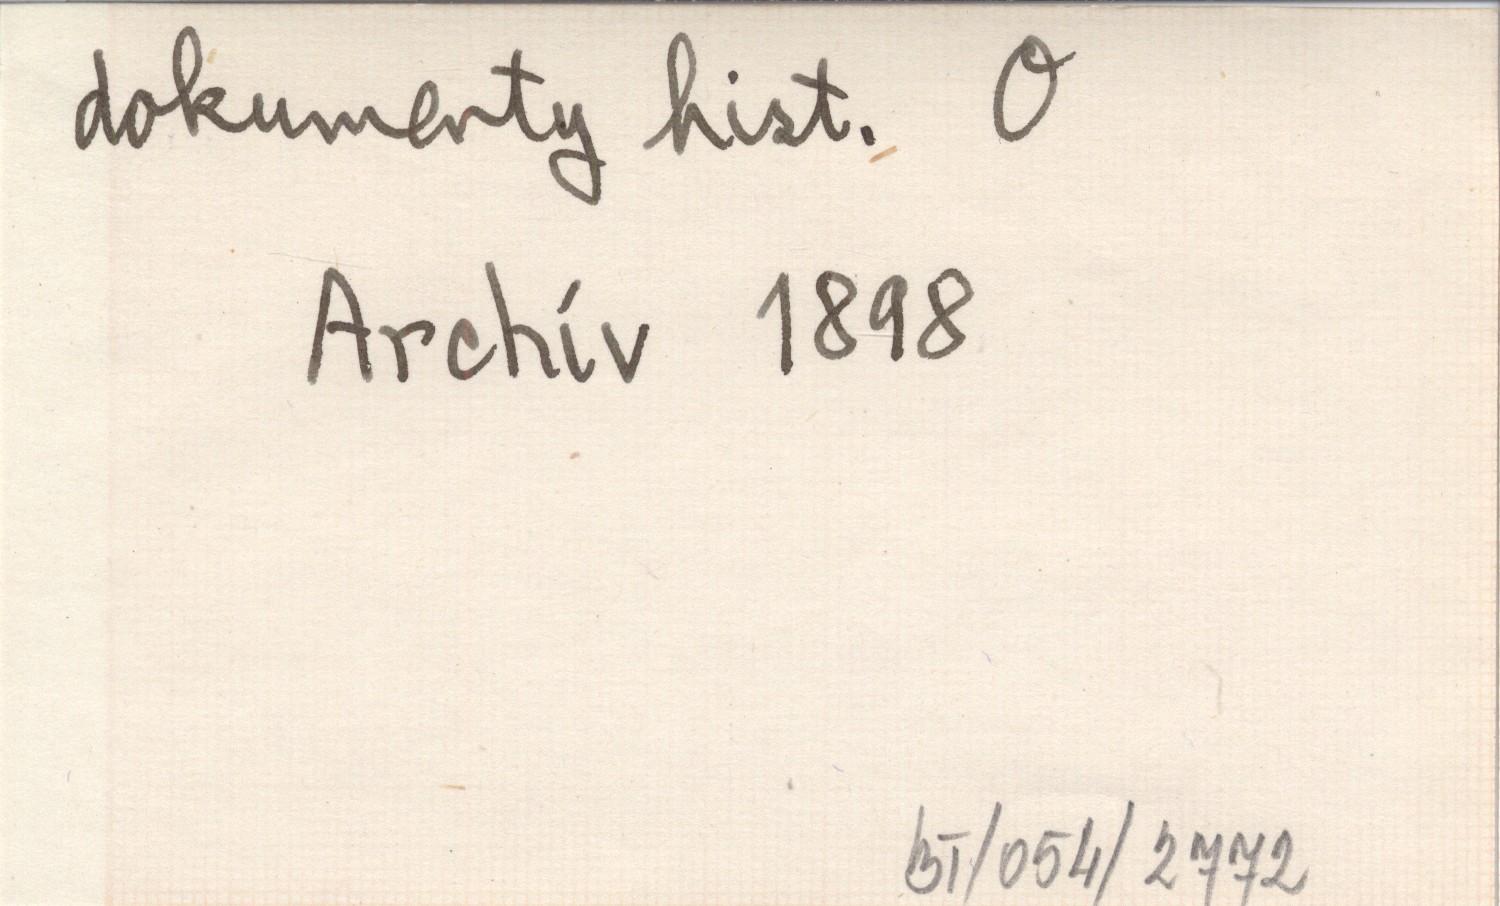 dokumenty hist. O
Archív 1898
BI/054/2772